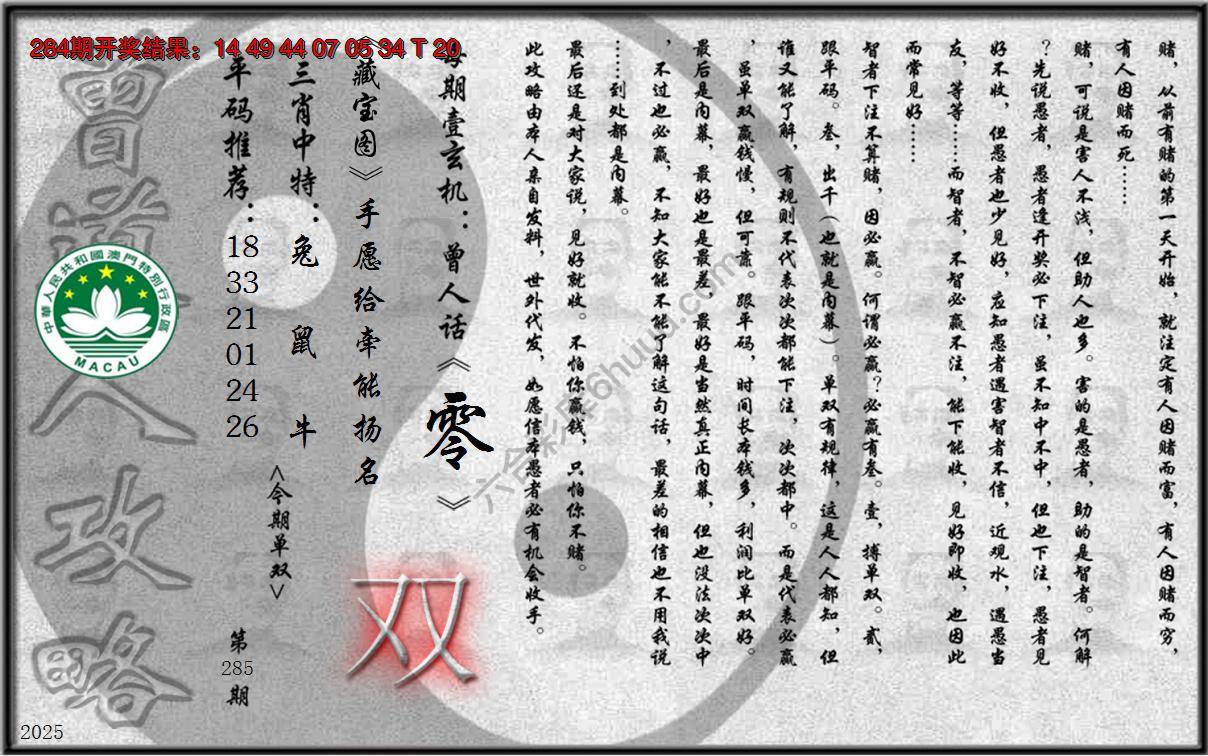 284期开奖结果：14 49 44 07 05 34 T 20
赌，从前有赌的第一天开始，就注定有人因赌而富，有人因赌而穷，
有人因赌而死……
赌，可说是害人不浅，但助人也多。害的是愚者，助的是智者。何解
？先说愚者，愚者逢开奖必下注，虽不知中不中，但也下注，愚者见
好不收，但愚者也少见好，应知愚者遇害智者不信，近观水，遇愚当
友，等等……而智者，不智必赢不注，能下能收，见好即收，也因此
而常见好……
智者下注不算赌，因必赢。何谓必赢？必赢有叁。壹，搏单双。贰，
跟平码。叁，出千（也就是内幕）。单双有规律，这是人人都知，但
谁又能了解，有规则不代表次次都能下注，次次都中。而是代表必赢
，虽单双赢钱慢，但可靠。跟平码，时间长本钱多，利润比单双好。
最后是内幕，最好也是最差，最好是当然真正内幕，但也没法次次中
，不过也必赢，不知大家能不能了解这句话，最差的相信也不用我说
……到处都是内幕。
最后还是对大家说，见好就收。不怕你赢钱，只怕你不赌。
此攻略由本人亲自发料，世外代发，如愿信本愚者必有机会收手。
每期壹玄机：曾人话《零》
《藏宝图》手愿给牵能扬名
双
三肖中特：兔 鼠 牛
<今期单双>
平码推荐：
18
33
21
01
24
26
第
285
期
曾道人攻略
中華人民共和國澳門特別行政區
MACAU
六合彩库6huuu.com
2025